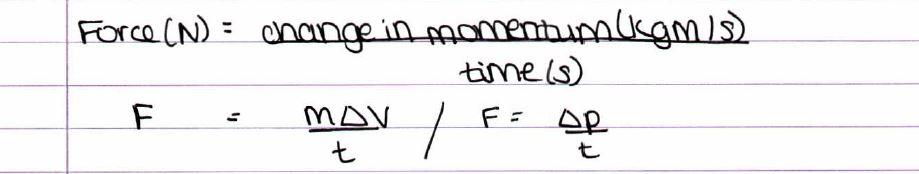 Force (N) = change in momentum (kgm/s)
time (s)
F = m△v / F = △p
t t